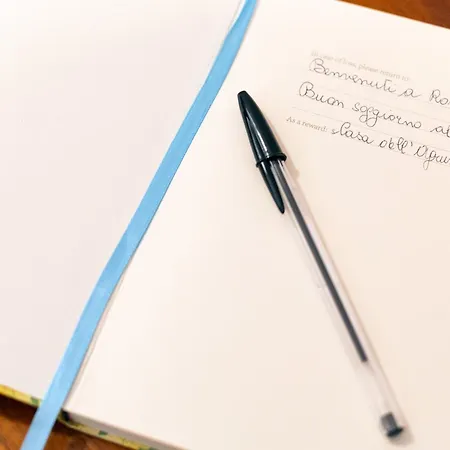 In case of loss, please return to:
Benvenuti a Ro
Buon soggiorno al
As a reward: Casa dell'Agru